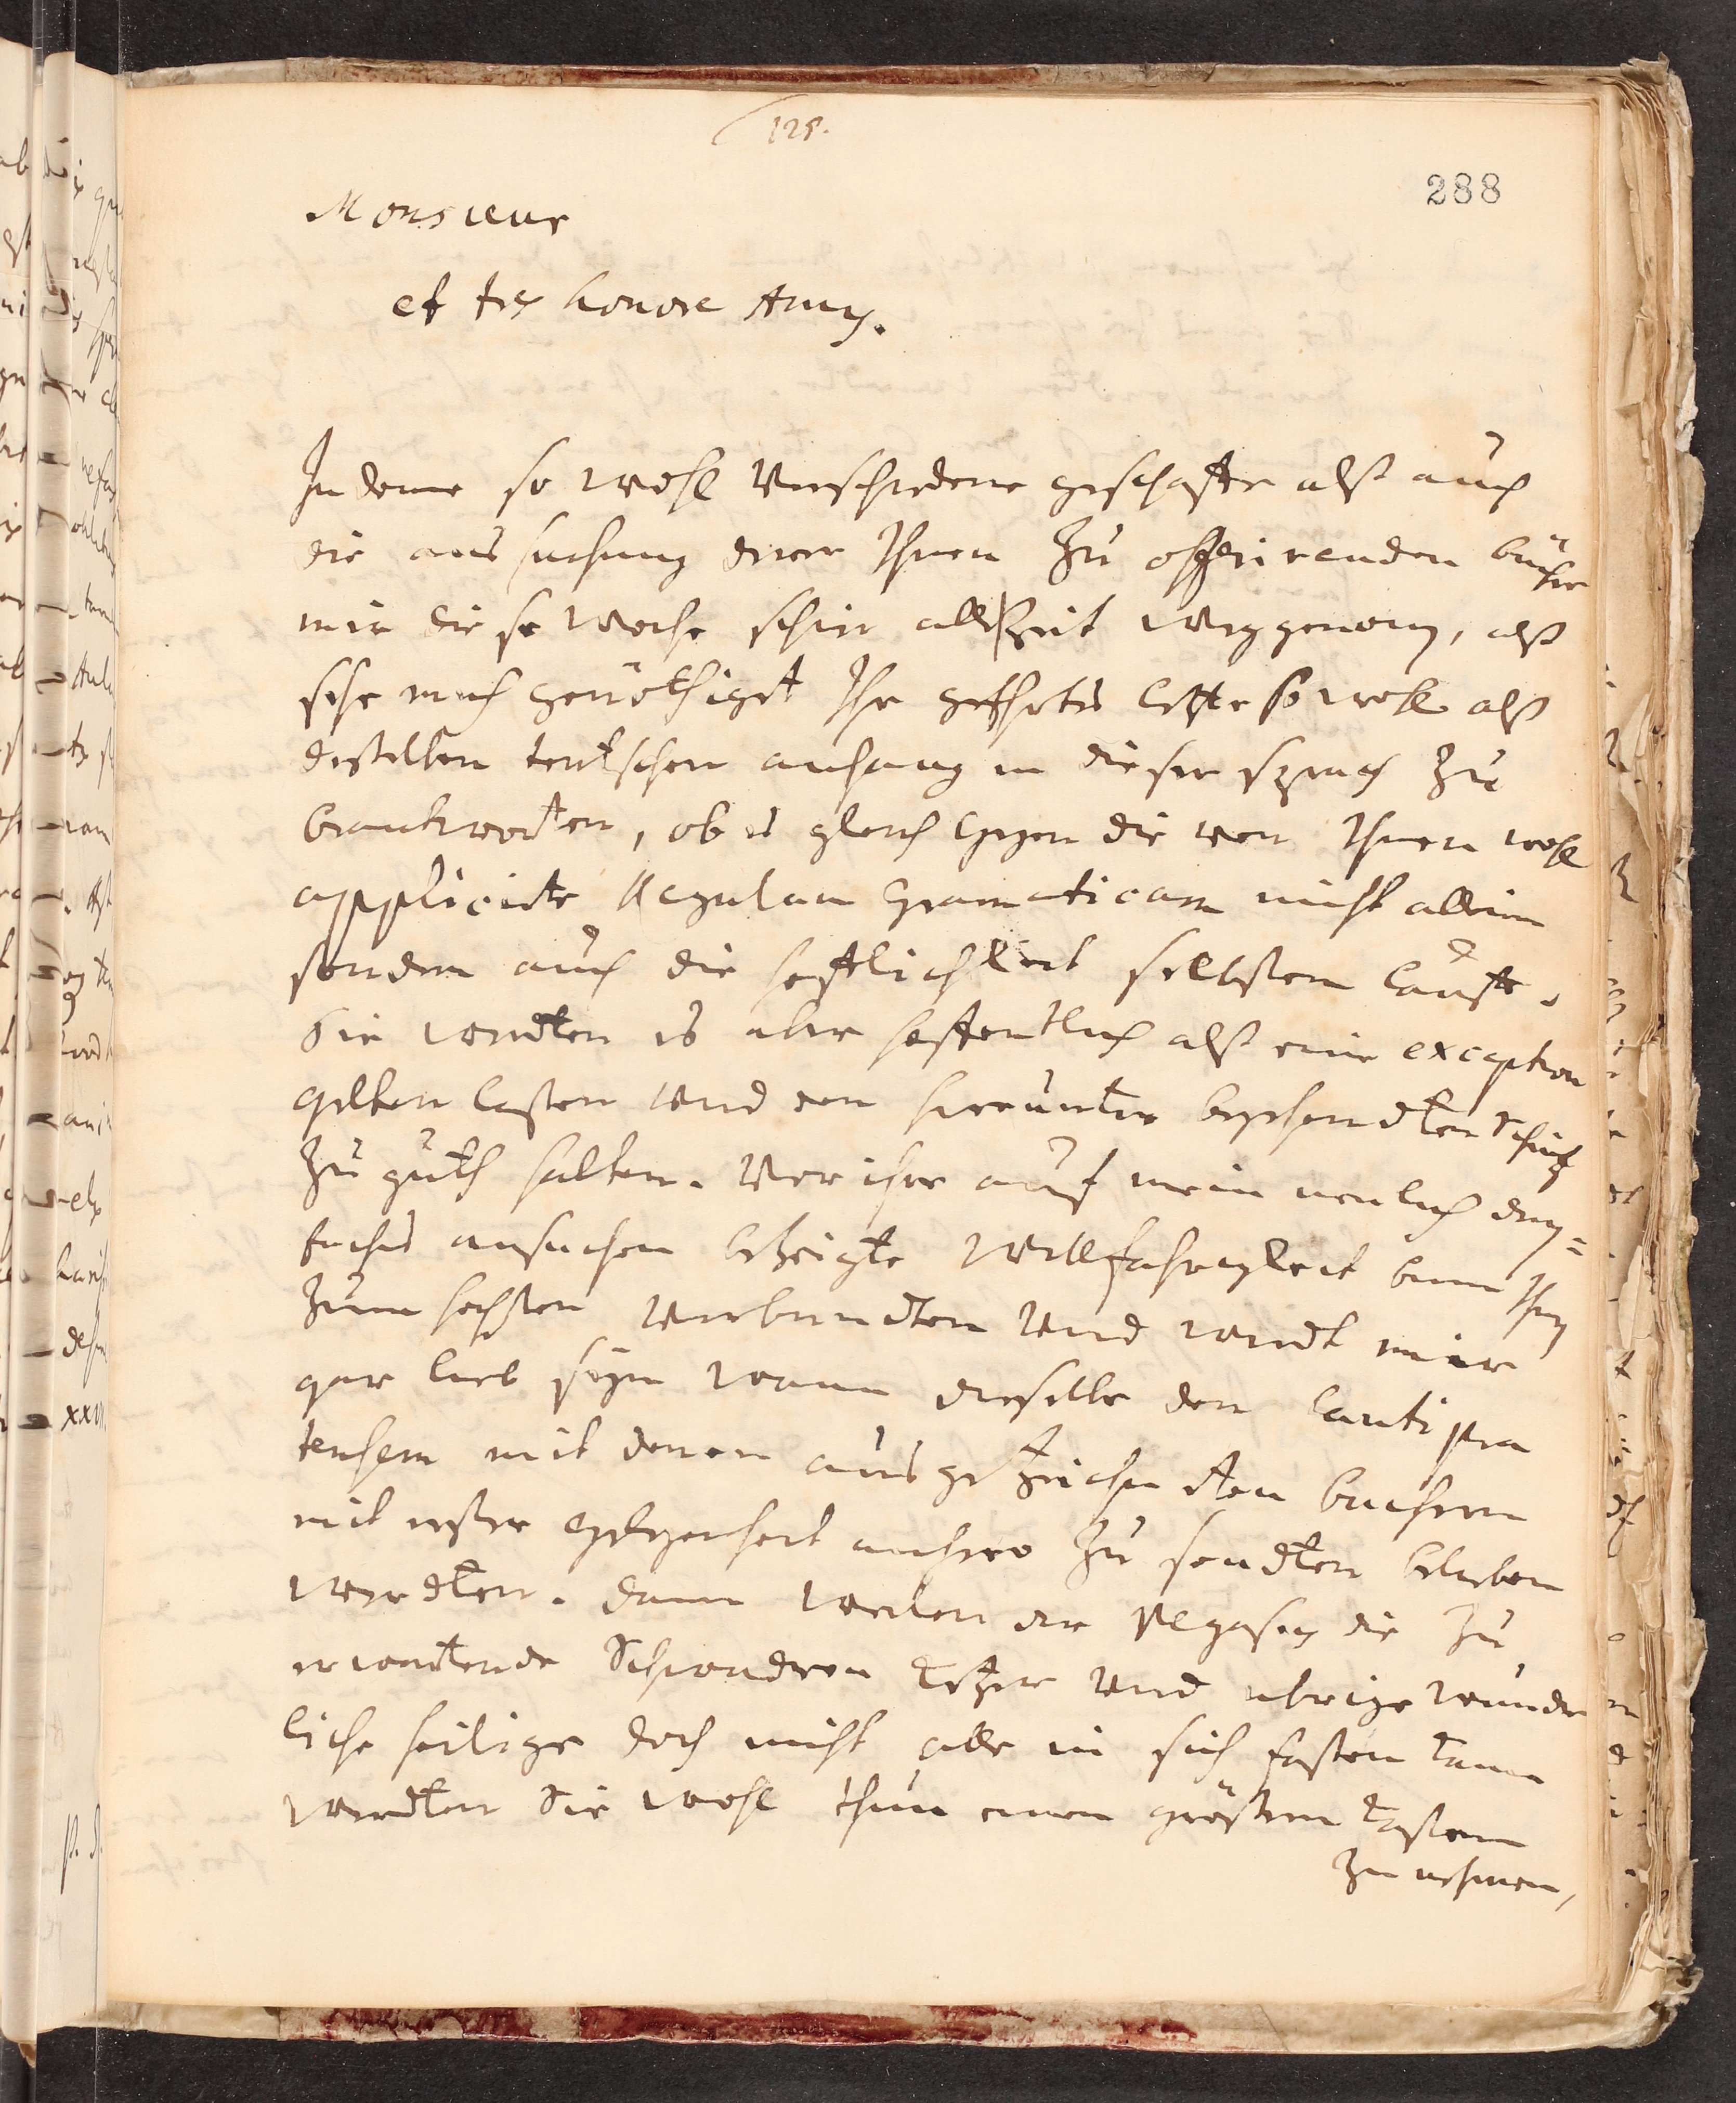 125.
288
Monsieur
et tres honore Amy.
Indeme so wohl Verschiedene geschäfte alß auch
die aussuchung derer Ihnen zu offerirenden bücher
mir diese woche schier alle Zeit weggenom̄, alß
sehe mich genöthiget Ihr geehrtes letzte so wohl alß
deßelben teutschen anhang in dieser sprach zu
beantworten, ob es gleich gegen die von Ihnen wohl
applicirte Regulam Gramaticam nicht allein
sondern auch die hofflichkeit selbsten laufft.
Sie werdten es aber hoffentlich alß eine exception
gelten laßen und den hierunter begehendten
zu guth halten. Vor ihre auf mein neulich
suchen bezeigte Willfahrigkeit bin Ihn̄
zum hochsten Verbundten Und wirdt mir
gar lieb seyn wann dieselbe den
mit denen ausgezeichndten buchern
mit erster gelegenheit anhero zu sendten belieben
werdten. dann weilen der Pegasus die zu
erwartende Schwondren Ketzer Und ubrige wunder
liche heilige doch nicht alle in sich faßen kann
werdten Sie wohl thun einen größern kasten
zu nehmen,